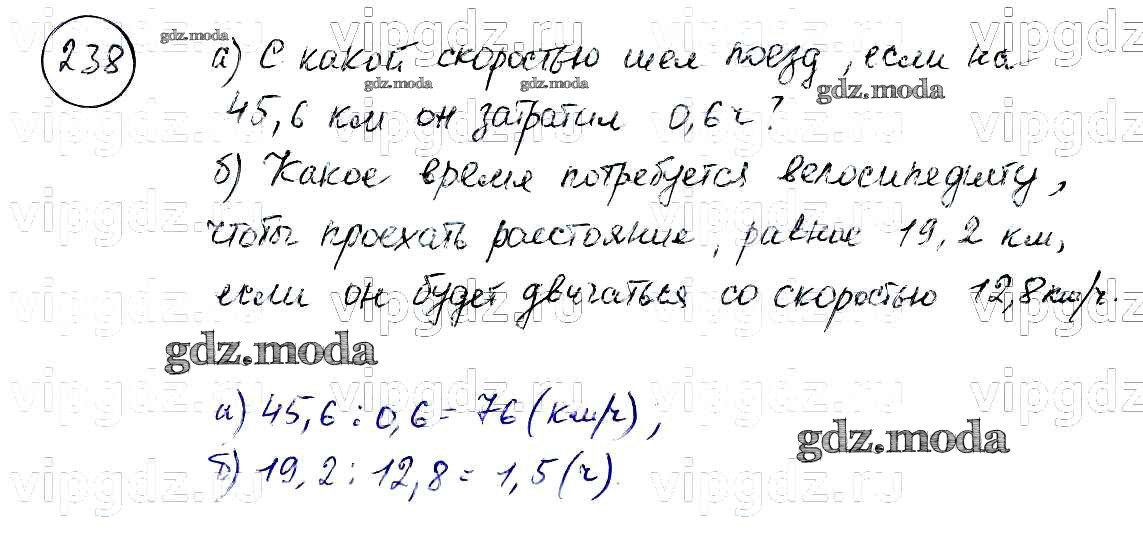 238 а) С какой скоростью шел поезд, если на
45,6 км он затратил 0,6 ч?
б) Какое время потребуется велосипедисту,
чтобы проехать расстояние, равное 19,2 км,
если он будет двигаться со скоростью 12,8 км/ч.
gdz.moda
а) 45,6 : 0,6 = 76 (км/ч),
gdz.moda
б) 19,2 : 12,8 = 1,5 (ч).